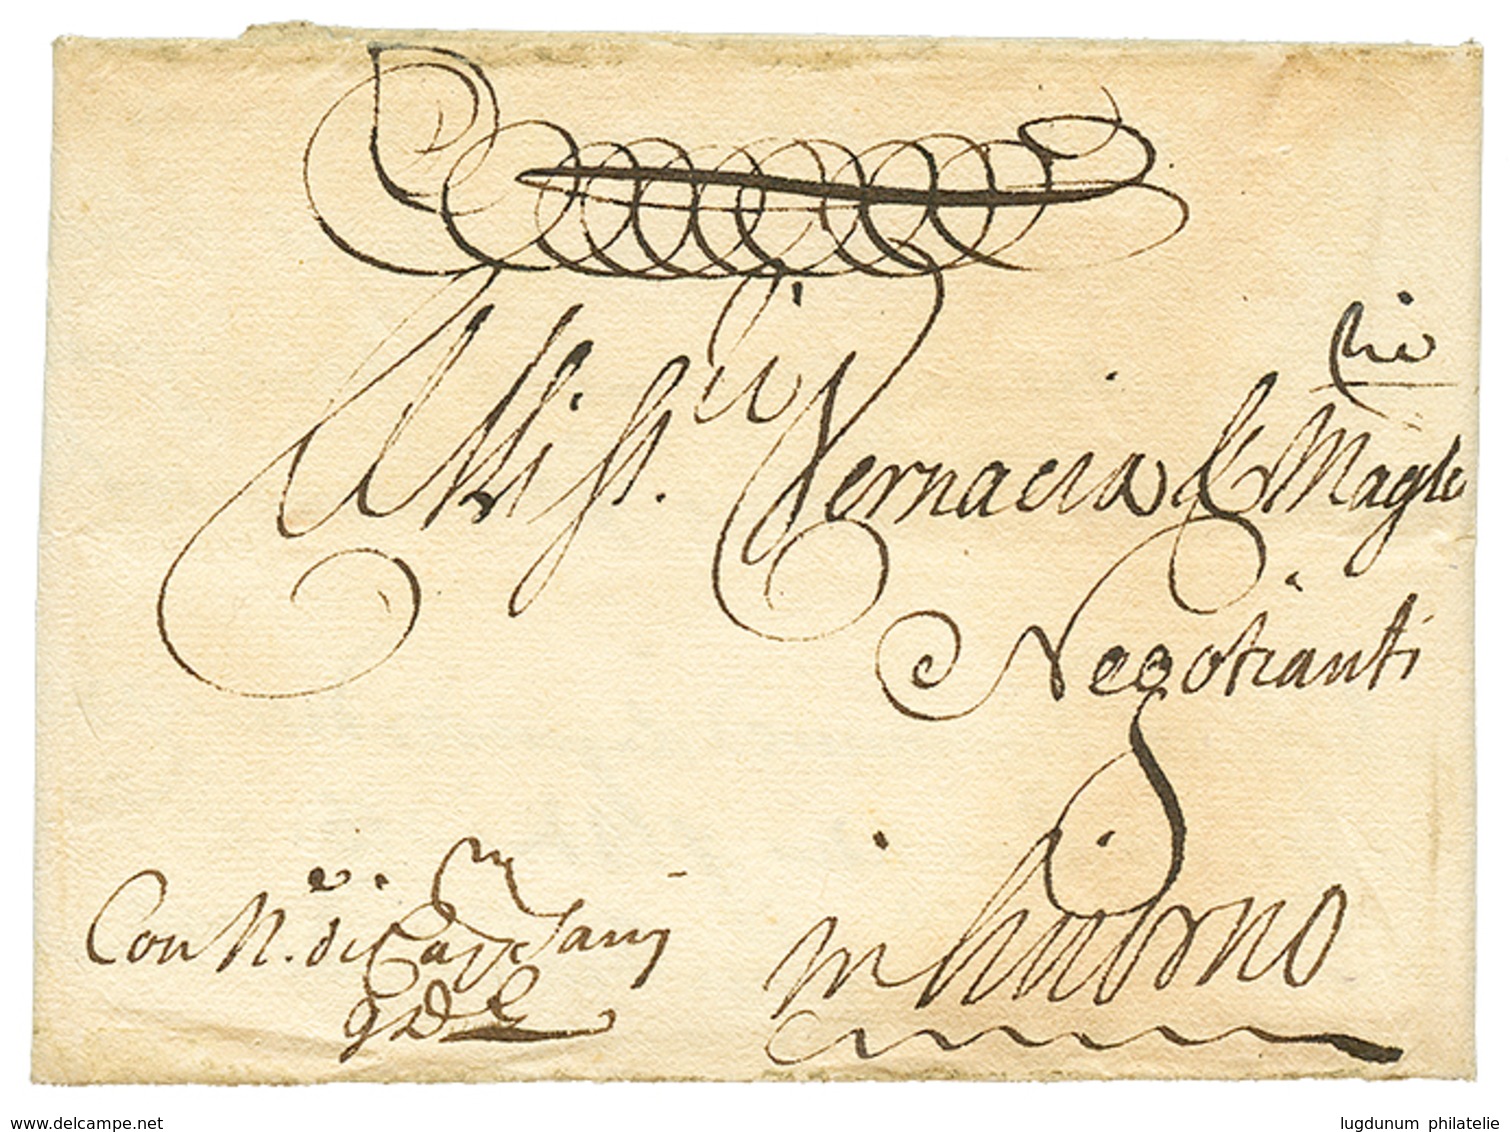 Alli Sig.ri Vernacia & Magh
Negotianti
in Livorno
Con N.e di Cap
g D G
www.delcampe.net
lugdunum philatelie